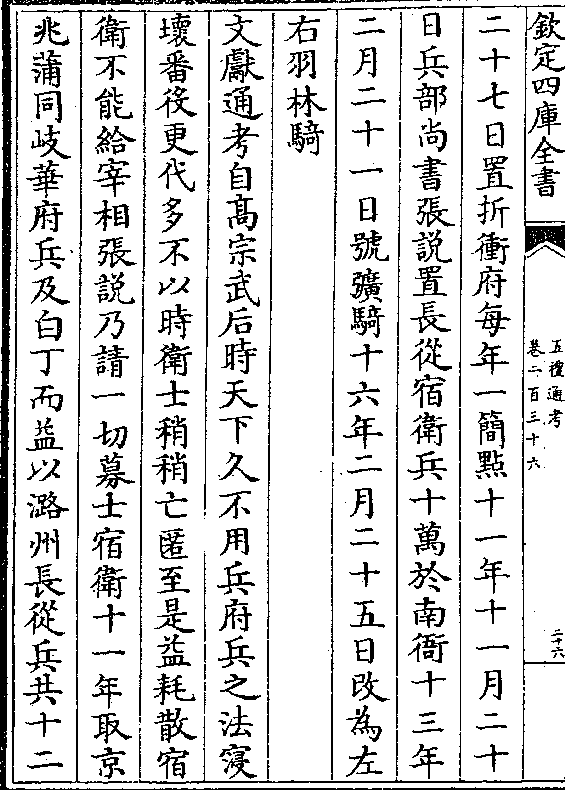 欽定四庫全書
五禮通考
卷二百三十六
二十六
二十七日置折衝府每年一簡點十一年十一月二十
日兵部尚書張說置長從宿衛兵十萬於南衙十三年
二月二十一日號彍騎十六年二月二十五日改為左
右羽林騎
文獻通考自髙宗武后時天下久不用兵府兵之法寖
壞番役更代多不以時衛士稍稍亡匿至是益耗散宿
衛不能給宰相張說乃請一切募士宿衛十一年取京
兆蒲同岐華府兵及白丁而益以潞州長從兵共十二